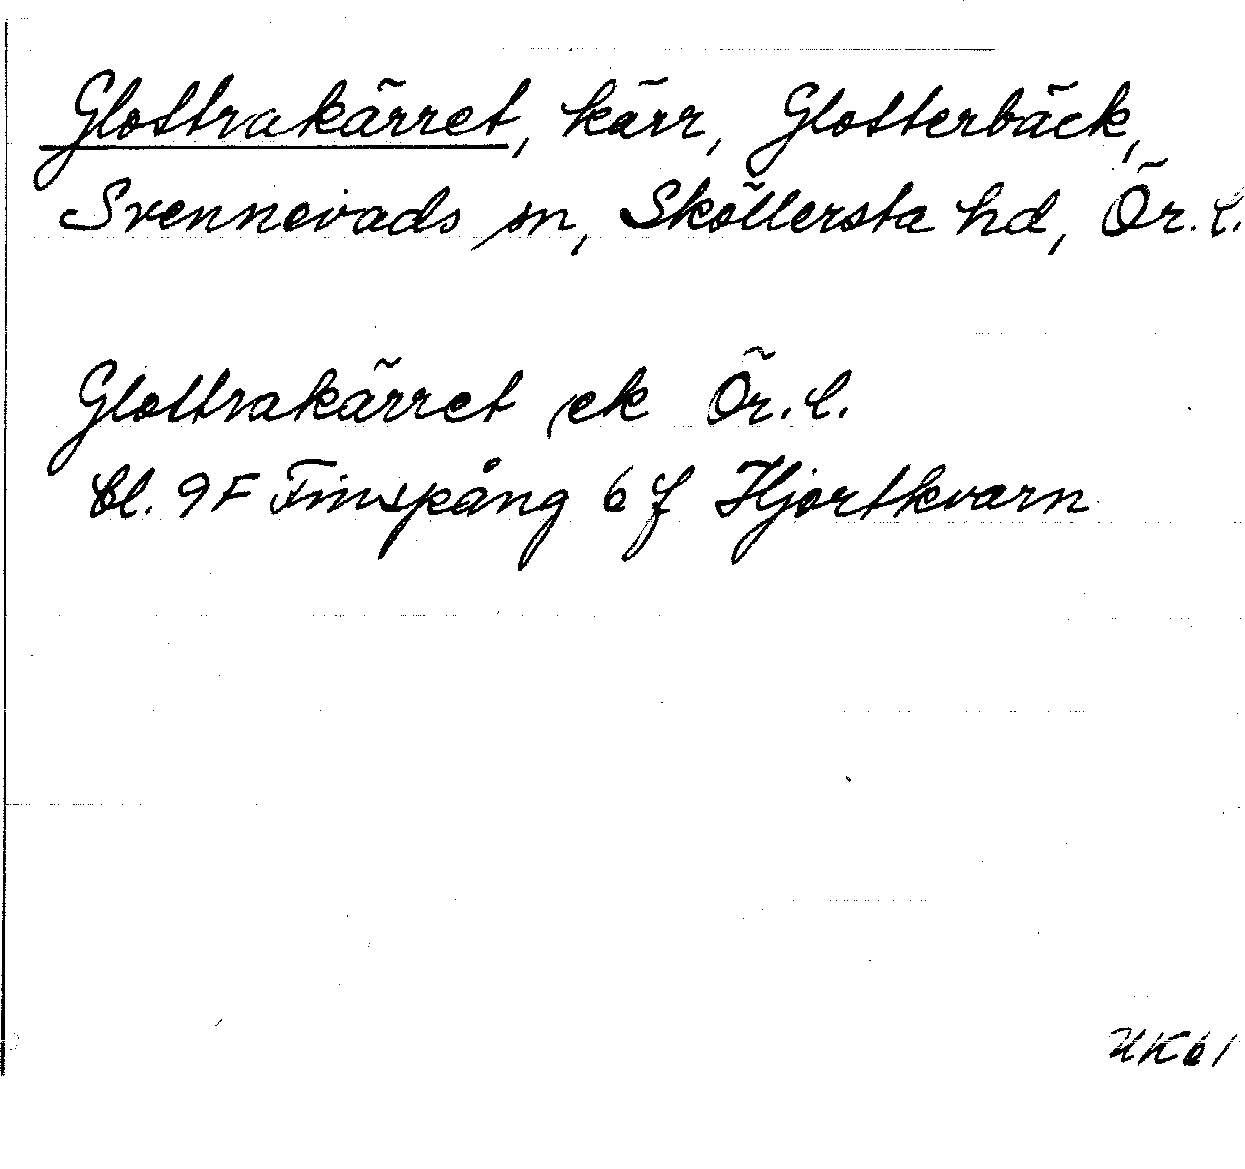 Glottrakärret, kärr, Glotterbäck,
Svennevads sn, Sköllersta hd, Ör. l.
Glottrakärret ek Ör. l.
bl. 9F Finspång 6 f Hjortkvarn
UK61